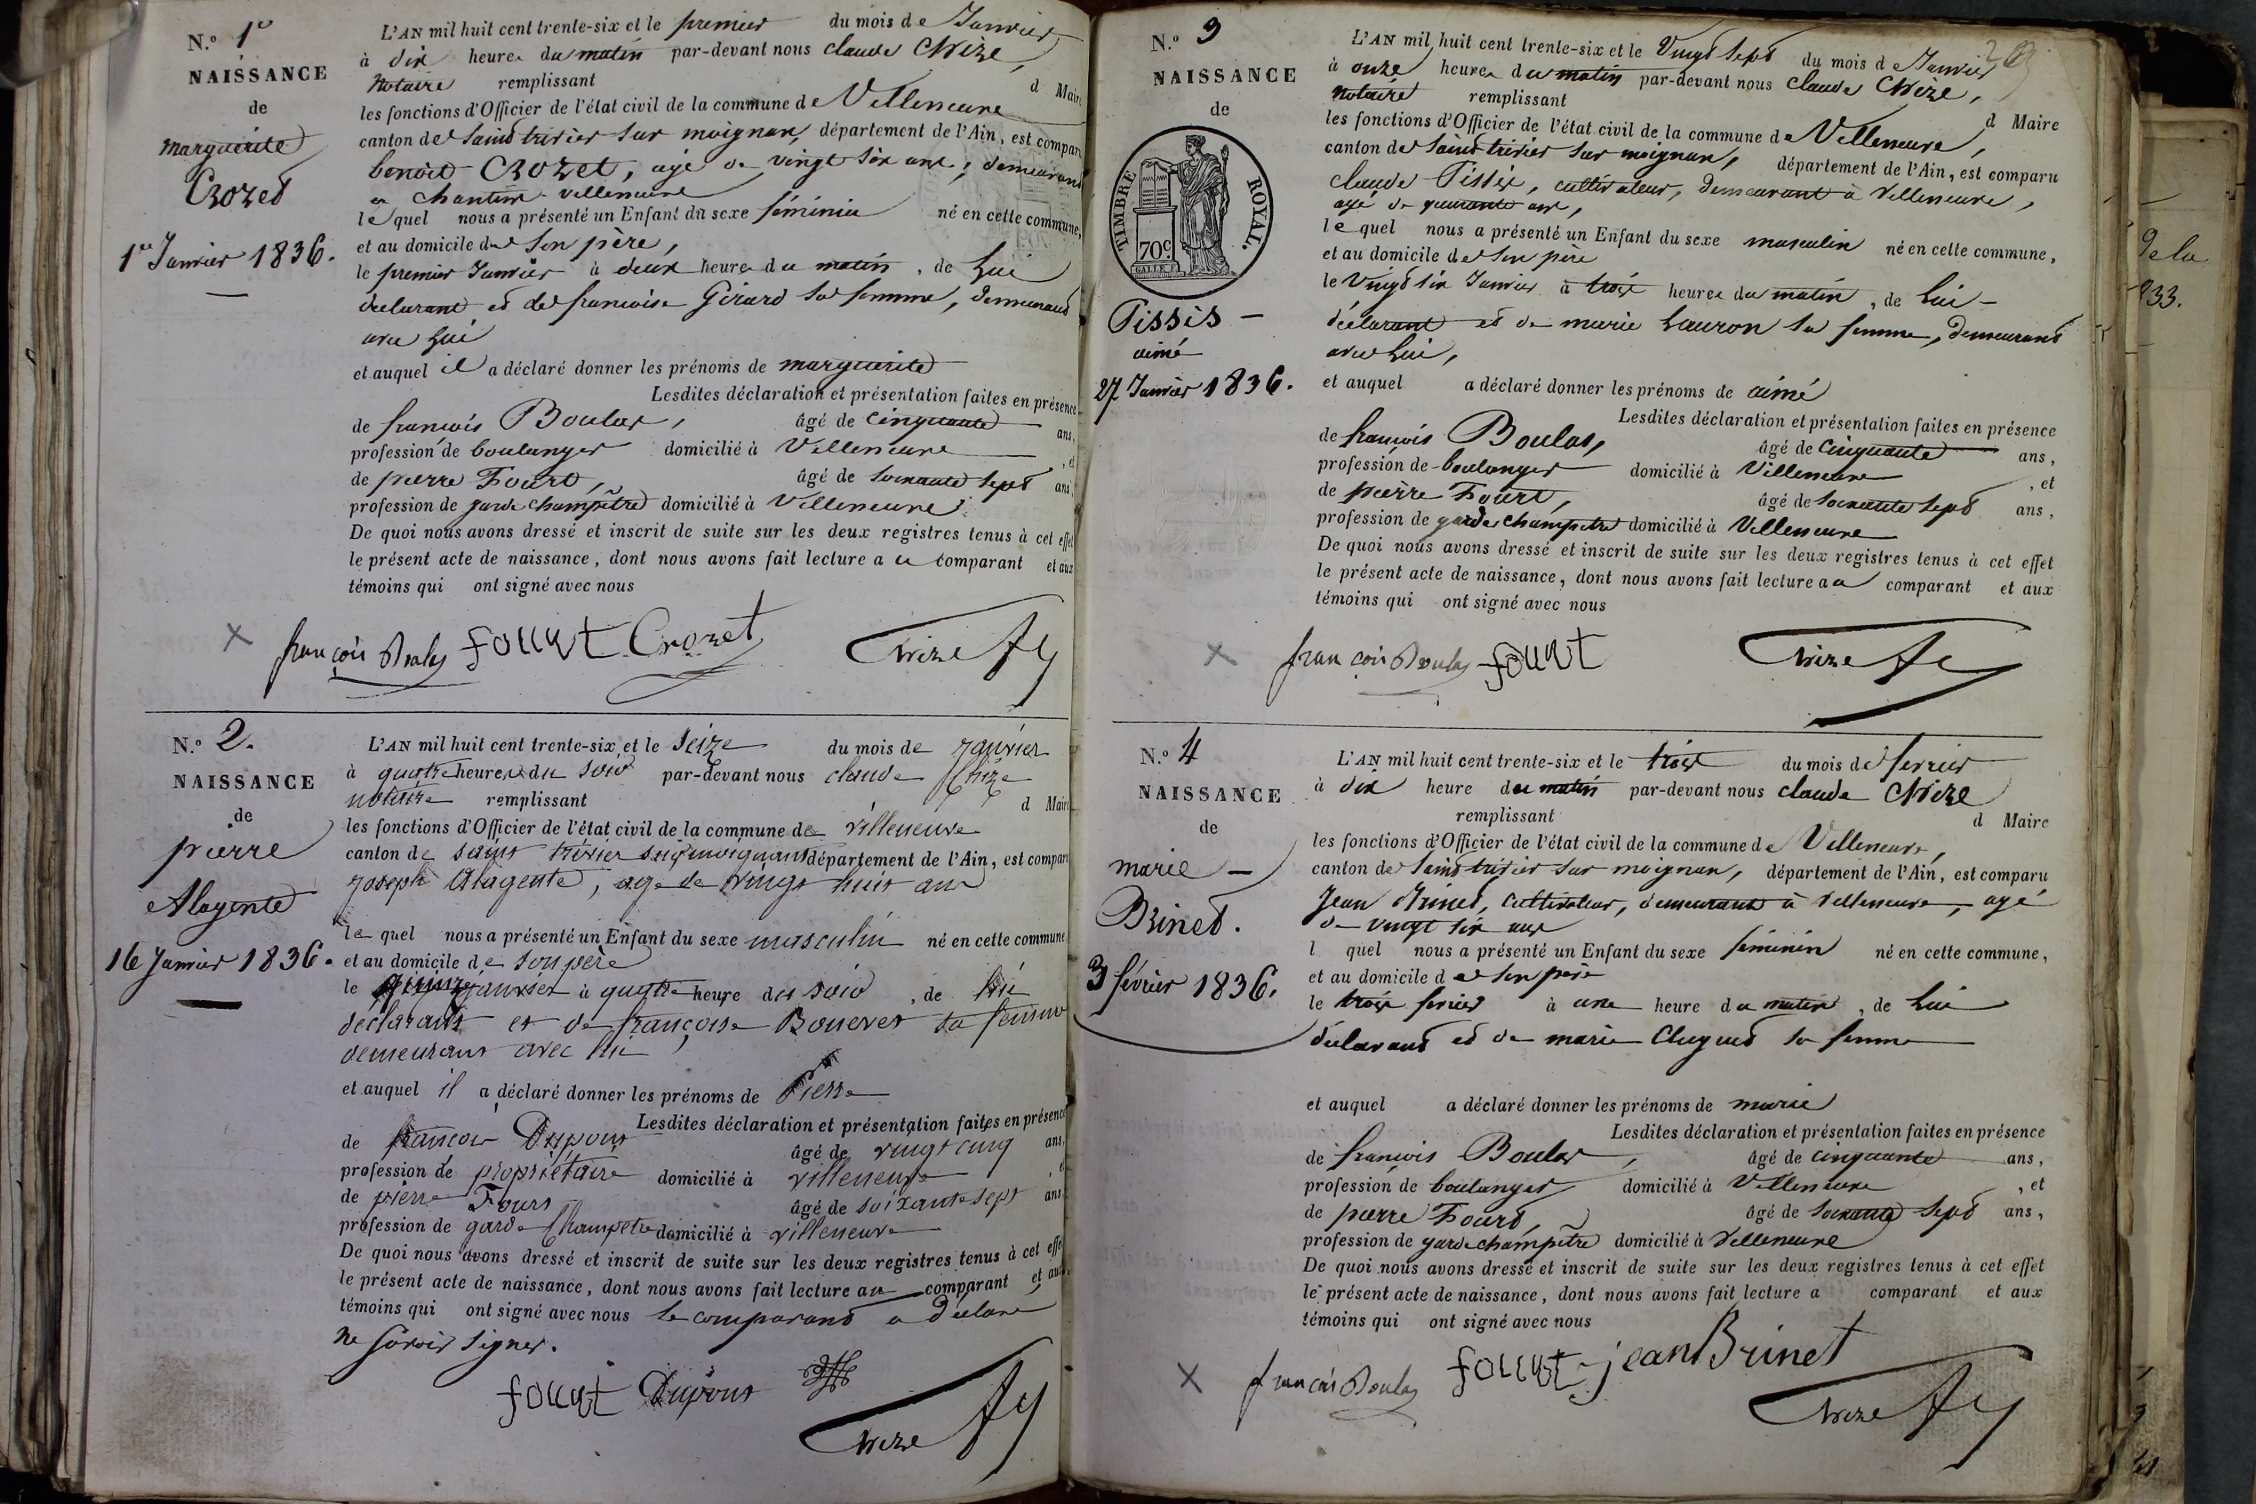 N.º 1er
NAISSANCE
de
marguerite
Crozet
1er Janvier 1836.
L'AN mil huit cent trente-six et le premier du mois de Janvier
à dix heures du matin par-devant nous claude Chize,
notaire remplissant d Maire
les fonctions d'Officier de l'état civil de la commune de Villeneuve
canton de Saint trivier sur moignan, département de l'Ain, est comparu
benoit Crozet, agé de vingt six ans, demeurant
a villeneuve
le quel nous a présenté un Enfant du sexe féminin né en cette commune,
et au domicile de son père,
le premier Janvier à deux heures du matin, de Lui
declarant et de francoise Girard sa femme, demeurant
avec Lui
et auquel il a déclaré donner les prénoms de marguerite
Lesdites déclaration et présentation faites en présence
de francois Boulas, âgé de cinquante ans,
profession de boulanger domicilié à Villeneuve, et
de pierre Fourt, âgé de soixante sept ans,
profession de garde champêtre domicilié à Villeneuve
De quoi nous avons dressé et inscrit de suite sur les deux registres tenus à cet effet
le présent acte de naissance, dont nous avons fait lecture a ce comparant et aux
témoins qui ont signé avec nous
françois Boulas fourt Crozet Chize
N.º 2.
NAISSANCE
de
pierre
Alagente
16 Janvier 1836.
L'AN mil huit cent trente-six, et le seize du mois de janvier
à quatre heures du soir par-devant nous claude Chize
notaire remplissant d Maire
les fonctions d'Officier de l'état civil de la commune de villeneuve
canton de saint trivier sur moignans département de l'Ain, est comparu
joseph Alagente, age de vingt huit ans
le quel nous a présenté un Enfant du sexe masculin né en cette commune
et au domicile de son père
le janvier à quatre heure du soir, de lui
declarant et de françoise Boueret sa femme
demeurant avec lui
et auquel il a déclaré donner les prénoms de Pierre
Lesdites déclaration et présentation faites en présence
de francois Dupont âgé de vingt cinq ans,
profession de propriétaire domicilié à villeneuve, et
de pierre Fourt âgé de soixante sept ans
profession de garde Champetre domicilié à villeneuve
De quoi nous avons dressé et inscrit de suite sur les deux registres tenus à cet effet
le présent acte de naissance, dont nous avons fait lecture au comparant et aux
témoins qui ont signé avec nous le comparant a déclaré
ne savoir signer.
fourt Dupont
Chize
N.º 3
NAISSANCE
de
TIMBRE ROYAL.
70c
Pissis
aimé
27 Janvier 1836.
L'AN mil huit cent trente-six et le Vingt Sept du mois de Janvier
à onze heures du matin par-devant nous claude Chize,
notaire remplissant d Maire
les fonctions d'Officier de l'état civil de la commune de Villeneuve,
canton de Saint trivier sur moignan, département de l'Ain, est comparu
claude Pissis, cultivateur, demeurant à Villeneuve,
agé de quarante ans,
le quel nous a présenté un Enfant du sexe masculin né en cette commune,
et au domicile de son père
le Vingt six Janvier à trois heures du matin, de Lui
déclarant et de marie Lauron sa femme, demeurant
avec Lui,
et auquel a déclaré donner les prénoms de aimé
Lesdites déclaration et présentation faites en présence
de françois Boulas, âgé de Cinquante ans,
profession de boulanger domicilié à Villeneuve, et
de pierre Fourt, âgé de soixante sept ans,
profession de garde champêtre domicilié à Villeneuve
De quoi nous avons dressé et inscrit de suite sur les deux registres tenus à cet effet
le présent acte de naissance, dont nous avons fait lecture a ce comparant et aux
témoins qui ont signé avec nous
françois Boulas fourt Chize
N.º 4
NAISSANCE
de
marie
Brinet.
3 février 1836.
L'AN mil huit cent trente-six et le trois du mois de fevrier
à dix heure du matin par-devant nous claude Chize
remplissant d Maire
les fonctions d'Officier de l'état civil de la commune de Villeneuve,
canton de Saint trivier sur moignan, département de l'Ain, est comparu
Jean Brinet, cultivateur, demeurant à Villeneuve, agé
de vingt six ans
l quel nous a présenté un Enfant du sexe féminin né en cette commune,
et au domicile de son père
le trois fevrier à une heure du matin, de Lui
déclarant et de marie Cluguet sa femme
et auquel a déclaré donner les prénoms de marie
Lesdites déclaration et présentation faites en présence
de francois Boulas, âgé de cinquante ans,
profession de boulanger domicilié à Villeneuve, et
de pierre Fourt, âgé de soixante sept ans,
profession de garde champêtre domicilié à Villeneuve
De quoi nous avons dressé et inscrit de suite sur les deux registres tenus à cet effet
le présent acte de naissance, dont nous avons fait lecture a comparant et aux
témoins qui ont signé avec nous
françois Boulas fourt jean Brinet
Chize
de la
33.